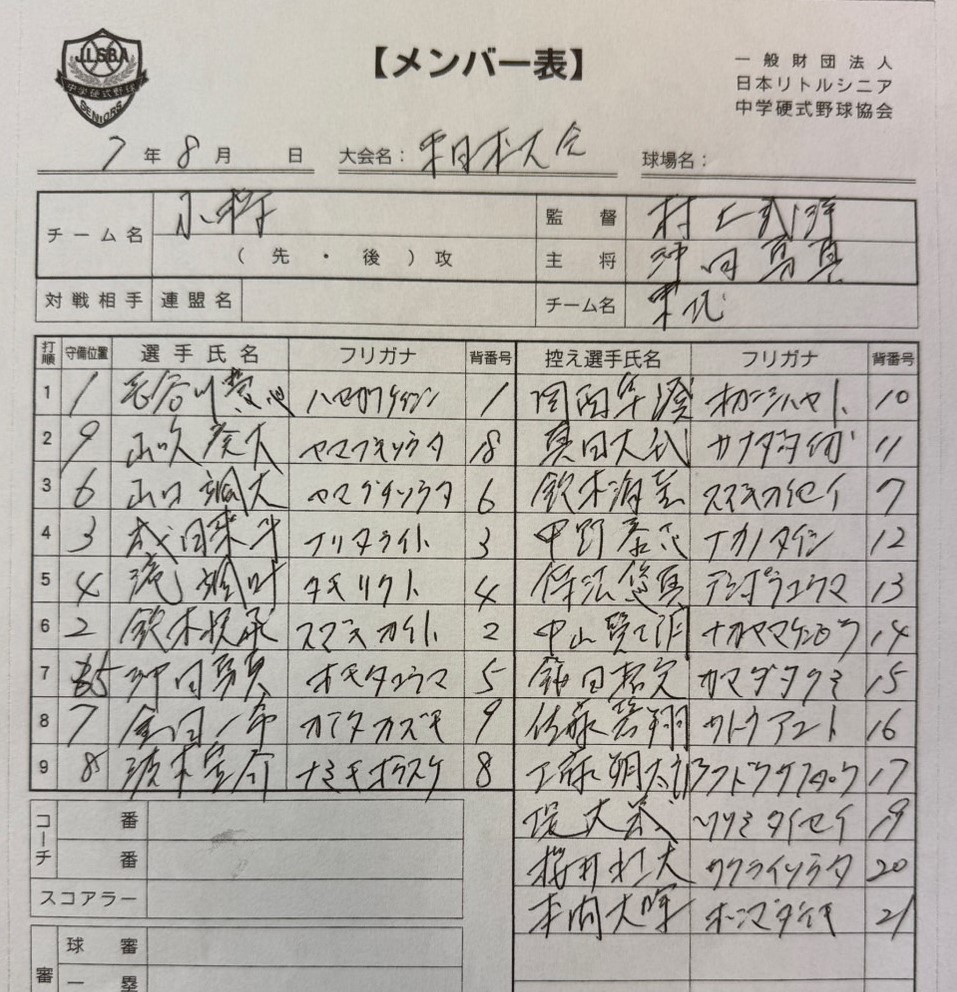 JLSBA
中学硬式野球
SENIORS
【メンバー表】
一般財団法人
日本リトルシニア
中学硬式野球協会
7年8月 日 大会名: 球場名:
チーム名 監督 村上
(先・後)攻 主将 沖田勇真
対戦相手 連盟名 チーム名 東北
打順 守備位置 選手氏名 フリガナ 背番号 控え選手氏名 フリガナ 背番号
1 1 長谷川 ハセガワケイシン 1 岡西隼澄 オカニシハヤト 10
2 9 山吹 ヤマブキソウタ 18 真田大武 11
3 6 山口颯大 ヤマグチソウタ 6 鈴木海 スズキカイセイ 7
4 3 成田来斗 ナリタライト 3 中野泰 ナカノタイシ 12
5 4 滝 タキリクト 4 伝法悠真 デンポウユウマ 13
6 2 鈴木 スズキカイト 2 中山賢 ナカヤマケンシロウ 14
7 5 沖田勇真 オキタユウマ 5 鎌田拓 カマダタクミ 15
8 7 金田一希 カネタカズキ 9 佐藤碧翔 サトウアオト 16
9 8 浪木 8 工藤朔太郎 クドウサクタロウ 17
堤大 ツツミタイセイ 19
コーチ 番
桜井 大 サクライソラタ 20
番
本間大暉 ホンマダイキ 21
スコアラー
審 球審
一塁